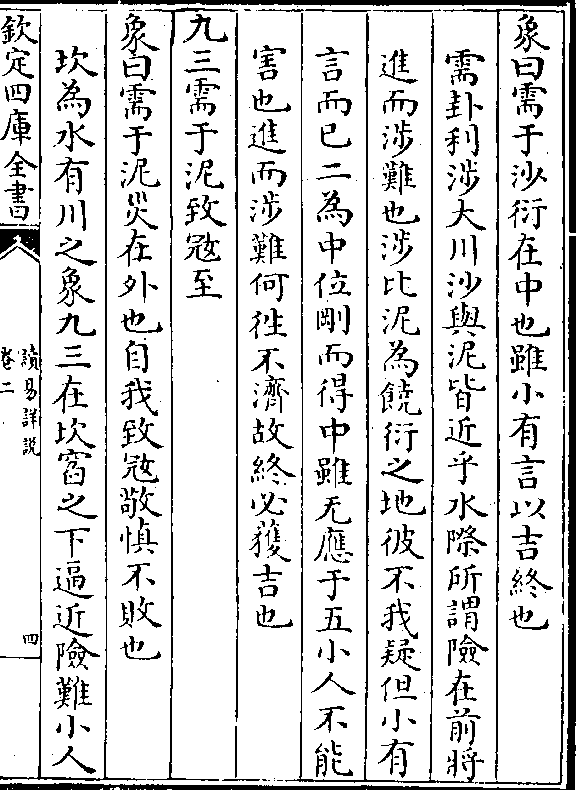 象曰需于沙衍在中也雖小有言以吉終也
需卦利涉大川沙與泥皆近乎水際所謂險在前將
進而涉難也涉比泥為饒衍之地彼不我疑但小有
言而已二為中位剛而得中雖无應于五小人不能
害也進而涉難何徃不濟故終必獲吉也
九三需于泥致宼至
象曰需于泥災在外也自我致宼敬慎不敗也
坎為水有川之象九三在坎窞之下逼近險難小人
欽定四庫全書
讀易詳說
卷二
四